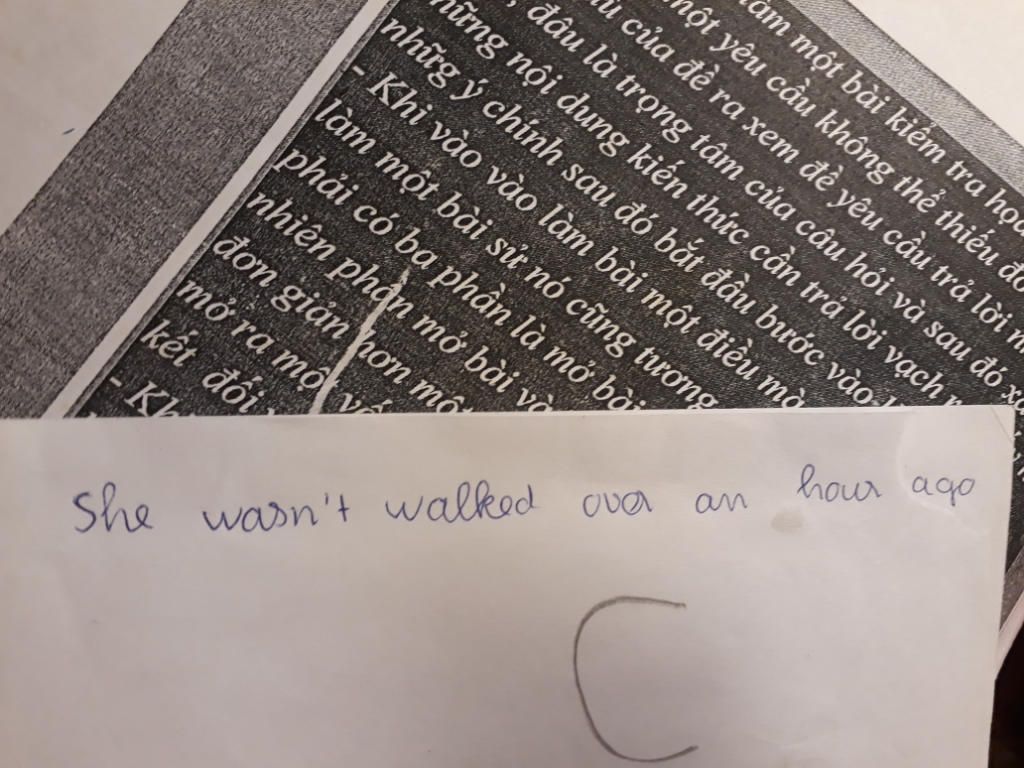 làm một bài kiểm tra học
một yêu cầu không thể thiếu đó
của đề ra xem đề yêu cầu trả lời
đâu là trọng tâm của câu hỏi và sau đó
những nội dung kiến thức cần trả lời vạch
những ý chính sau đó bắt đầu bước vào
- Khi vào vào làm bài một điều mà
làm một bài sử nó cũng tương
phải có ba phần là mở bài
nhiên phần mở bài và
đơn giản hơn một
mở ra một
kết đối
- Kh
She wasn't walked over an hour ago
C